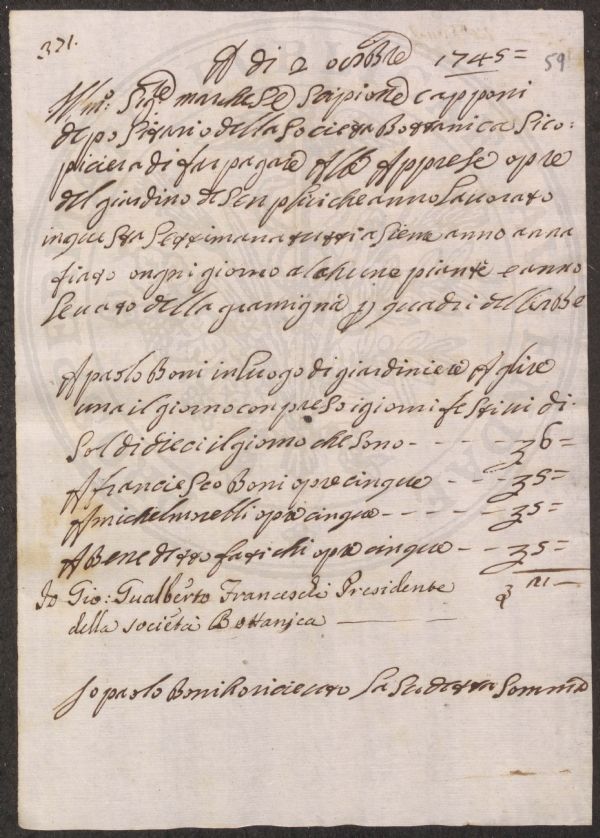 371.
A dì 2 ottobre 1745 =
59
Ill.mo Sig.re marchese Scipione Capponi
depositario della Societa Bottanica Si co:
piacera di far pagare Alle Apprese opre
del giardino de Senplici che anno Lauorato
in questa Settimana tutti asieme anno anna
fiato ongni giorno alchune piante e anno
Leuato della gramigna p quadri dellerbe
A paolo Boni in Luogo di giardiniere A lire
una il giorno conpreso i giorni festiui di
Soldi dieci il giorno che Sono - - - - £ 6 =
A franciesco Boni opre cinque - - - £ 5 =
A michel morelli opre cinque - - - - - £ 5 =
A Benedetto fatichi opre cinque - - £ 5 =
Io Gio: Gualberto Franceschi Presidente £ 21 —
della società Bottanica —
Io paolo Boni ho riceuto La Sudetta Somma